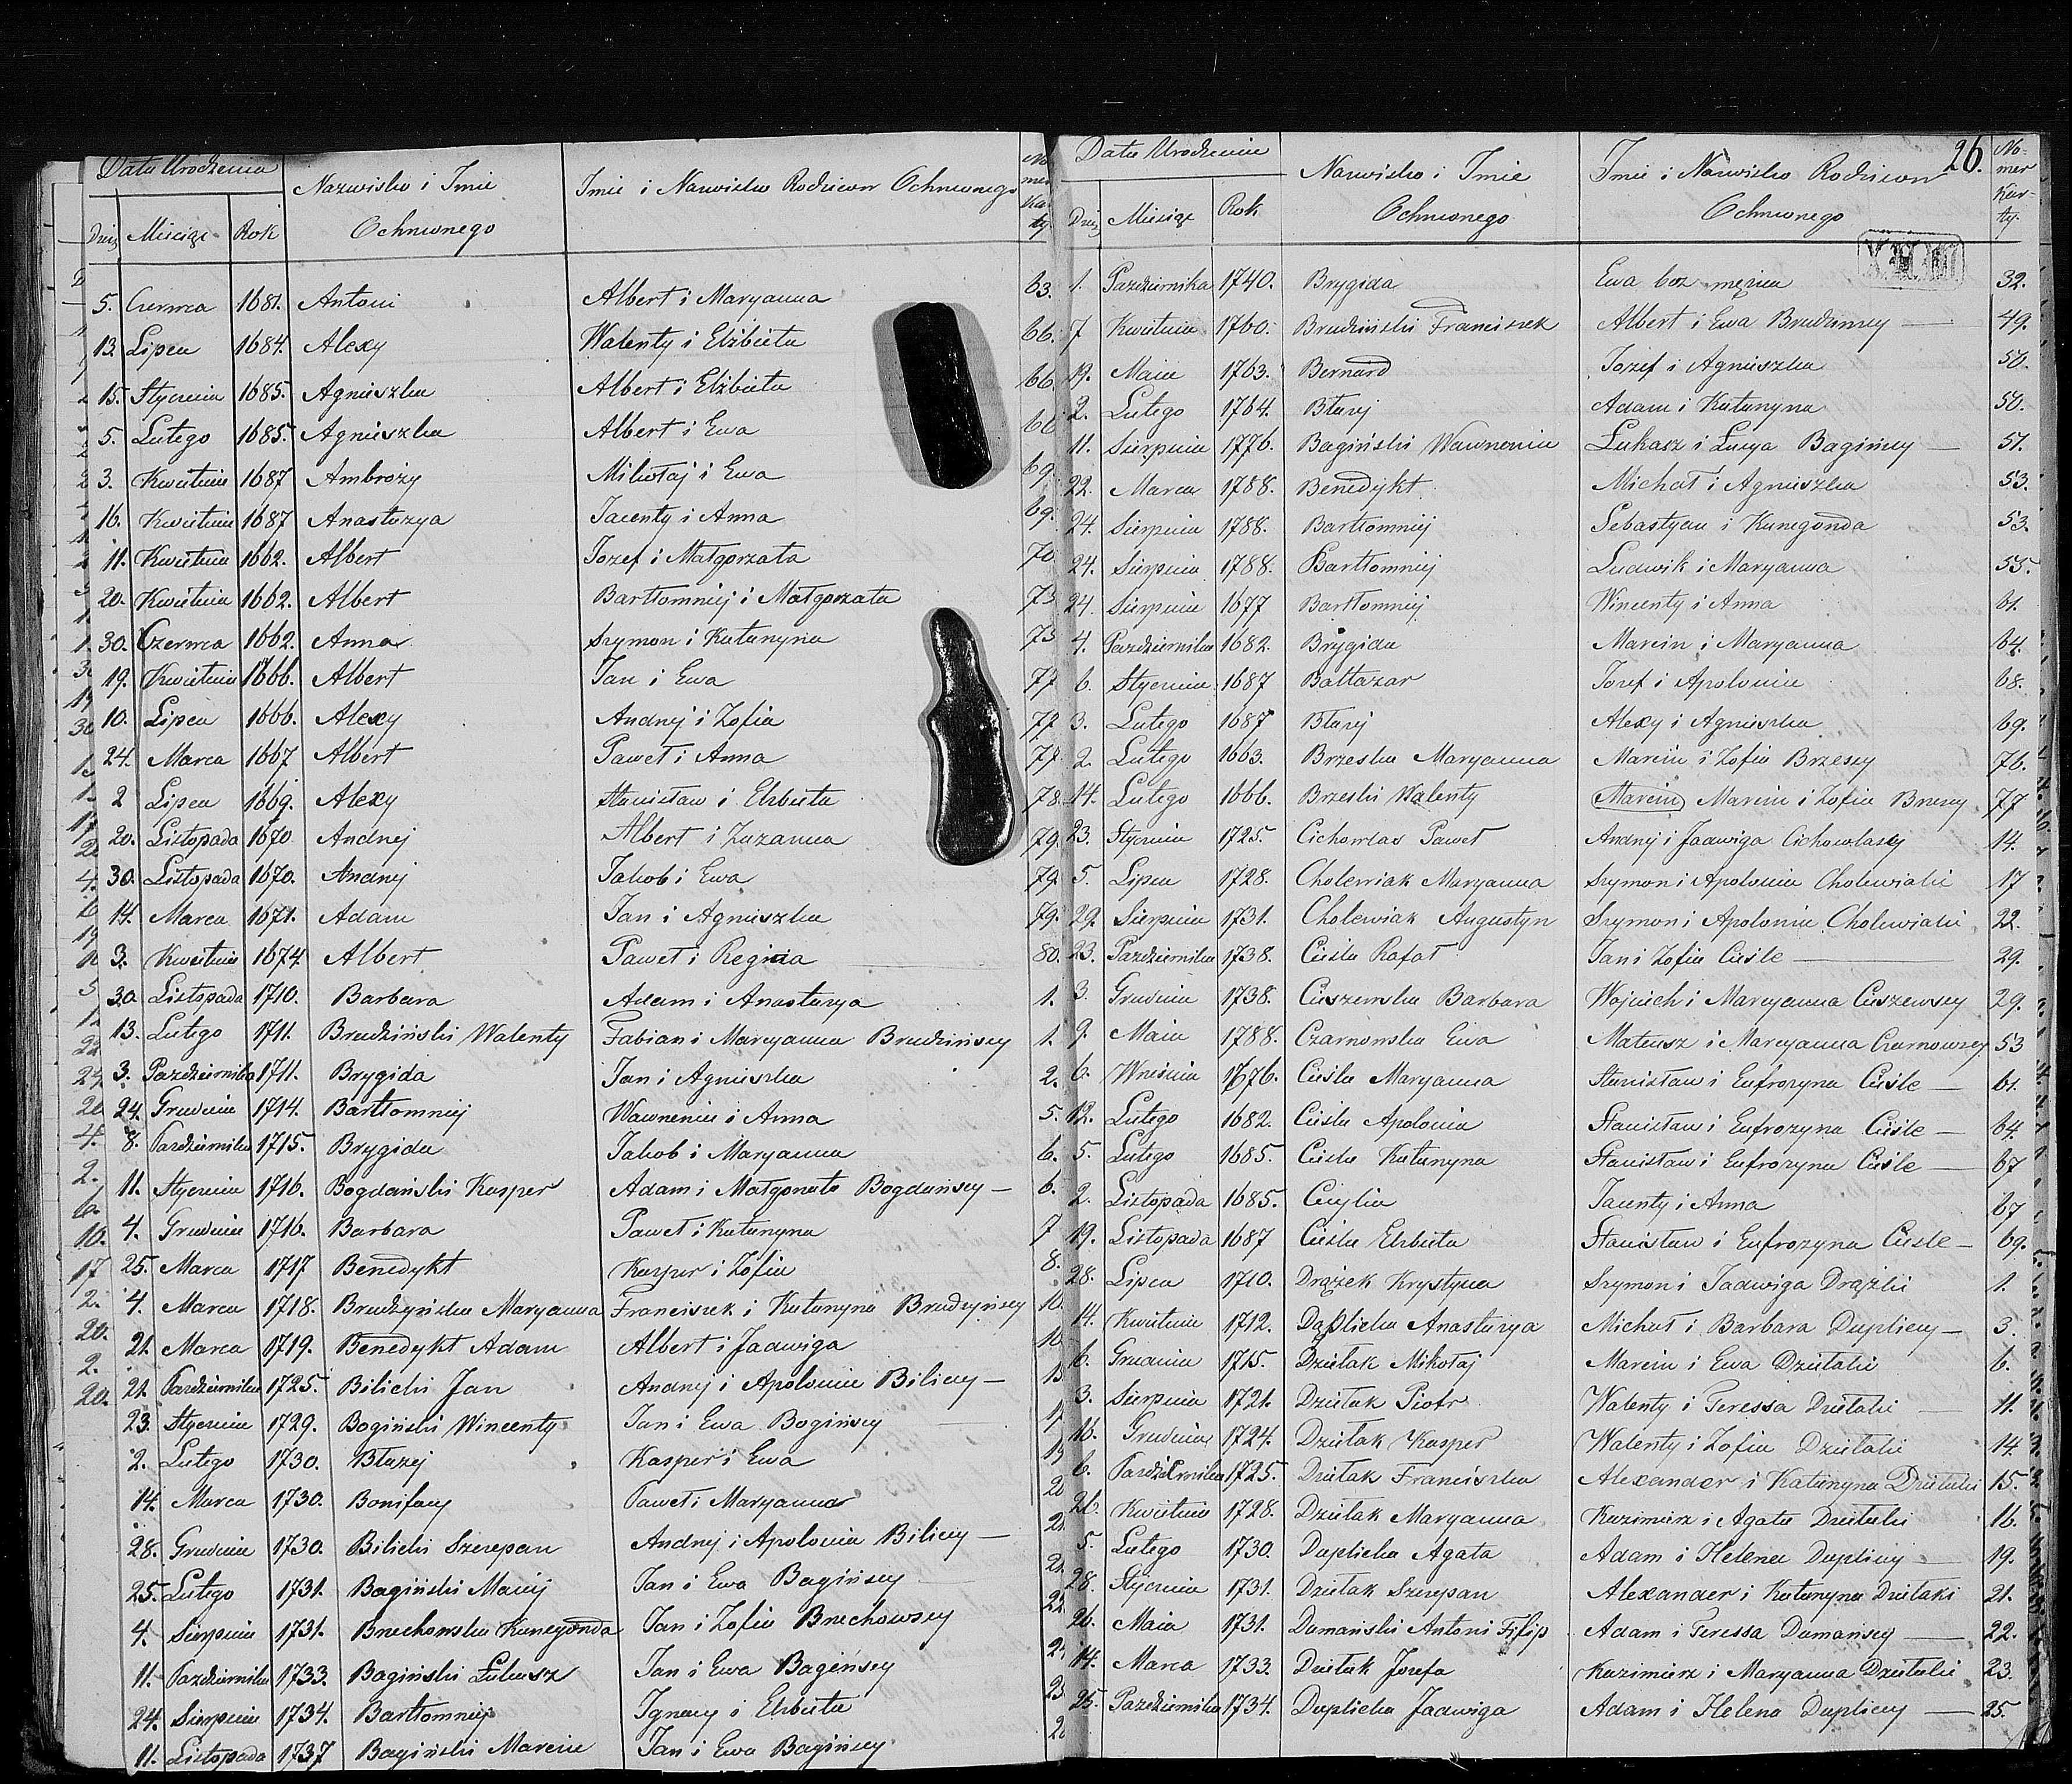 Data Urodzenia
Nazwisko i Imie
Ochrconego
Imie i Nazwisko Rodzicow Ochrconego
No
mer
Kar
ty
Dzień Miesiąc Rok
5. Czerwca 1681. Antoni Albert i Maryanna 63.
13. Lipca 1684. Alexy Walenty i Elżbieta 66.
15. Stycznia 1685. Agnieszka Albert i Elżbieta 66
5. Lutego 1685. Agnieszka Albert i Ewa 66
3. Kwietnia 1687 Ambroży Mikołaj i Ewa 69
16. Kwietnia 1687 Anastazya Jacenty i Anna 69.
11. Kwietnia 1662. Albert Jozef i Małgorzata 70.
20. Kwietnia 1662. Albert Bartłomniej i Małgorzata 73
30. Czerwca 1662. Anna Szymon i Katarzyna 73
19. Kwietnia 1666. Albert Jan i Ewa 77
10. Lipca 1666. Alexy Andrzej i Zofia 77
24. Marca 1667 Albert Paweł i Anna 77
2 Lipca 1669. Alexy Stanisław i Elzbieta 78
20. Listopada 1670 Andrzej Albert i Zuzanna 79.
30. Listopada 1670. Andrzej Jakob i Ewa 79
14. Marca 1671. Adam Jan i Agnieszka 79.
3. Kwietnia 1674. Albert Paweł i Regina 80.
30. Listopada 1710. Barbara Adam i Anastazya 1.
13. Lutego 1711. Brudziński Walenty Fabian i Maryanna Brudzińscy 1.
3. Pazdziernika 1711. Brygida Jan i Agnieszka 2.
24. Grudnia 1714. Bartłomniej Wawrzeniec i Anna 5.
8. Pazdziernika 1715. Brygida Jakob i Maryanna 6.
11. Stycznia 1716. Bogdański Kasper Adam i Małgorzata Bogdańscy — 6.
4. Grudnia 1716. Barbara Paweł i Katarzyna 7
25. Marca 1717 Benedykt Kasper i Zofia 8.
4. Marca 1718. Brudzyńska Maryanna Franciszek i Katarzyna Brudzyńscy 10.
21. Marca 1719. Benedykt Adam Albert i Jadwiga 10
21. Pazdziernika 1725. Bilicki Jan Andrzej i Apolonia Biliccy — 15
23. Stycznia 1729. Bogiński Wincenty Jan i Ewa Bogińscy
2. Lutego 1730. Błażej Kasper i Ewa 19
14. Marca 1730. Bonifacy Paweł i Maryanna 20
28. Grudnia 1730. Bilicki Szczepan Andrzej i Apolonia Biliccy —
25. Lutego 1731. Bagiński Maciej Jan i Ewa Bagińscy
4. Sierpnia 1731. Brzechowska Kunegonda Jan i Zofia Brzechowscy 22
11. Pazdziernika 1733. Bagiński Łukasz Jan i Ewa Bagińscy
24. Sierpnia 1734. Bartłomniej Ignacy i Elzbieta 25
11. Listopada 1737 Bagiński Marcin Jan i Ewa Bagińscy
26.
Data Urodzenia
Nazwisko i Imie
Ochrconego
Imie i Nazwisko Rodzicow
Ochrconego
No-
mer
Kar-
ty.
Dzień Miesiąc Rok
1. Pazdziernika 1740. Brygida Ewa bez mężna 32.
7 Kwietnia 1760. Brudziński Franciszek Albert i Ewa Brudzinscy — 49.
19. Maia 1763. Bernard Jozef i Agnieszka 50.
2. Lutego 1764. Błazej Adam i Katarzyna 50.
11. Sierpnia 1776. Bagiński Wawrzeniec Łukasz i Łucya Bagińscy — 51.
22. Marca 1788. Benedykt Michał i Agnieszka 53.
24. Sierpnia 1788. Bartłomniej Sebastyan i Kunegonda 53.
24. Sierpnia 1788. Bartłomniej Ludwik i Maryanna 55.
24. Sierpnia 1677 Bartłomniej Wincenty i Anna 61.
4. Pazdziernika 1682. Brygida Marcin i Maryanna 64.
6. Stycznia 1687 Baltazar Jozef i Apolonia 68.
3. Lutego 1687 Błazej Alexy i Agnieszka 69.
2. Lutego 1663. Brzeska Maryanna Marcin i Zofia Brzescy 76.
14. Lutego 1666. Brzeski Walenty Marcin Marcin i Zofia Brzescy 77
23. Stycznia 1725. Cichowlas Paweł Andrzej i Jadwiga Cichowlascy 14.
5. Lipca 1728. Cholewiak Maryanna Szymon i Apolonia Cholewiaki 17
29. Sierpnia 1731. Cholewiak Augustyn Szymon i Apolonia Cholewiaki 22.
23. Pazdziernika 1738. Cieśla Rafał Jan i Zofia Cieśle — 29.
3. Grudnia 1738. Cieszewska Barbara Wojciech i Maryanna Cieszewscy 29.
9. Maia 1788. Czarnowska Ewa Mateusz i Maryanna Czarnowscy 53
6. Września 1676. Cieśla Maryanna Stanisław i Eufrozyna Cieśle — 61.
12. Lutego 1682. Cieśla Apolonia Stanisław i Eufrozyna Cieśle — 64.
5. Lutego 1685. Ciesla Katarzyna Stanisław i Eufrozyna Cieśle — 67
2. Listopada 1685. Cecylia Jacenty i Anna 67
19. Listopada 1687 Cieśla Elzbieta Stanisław i Eufrozyna Ciesle — 69.
28. Lipca 1710. Drążek Krystyna Szymon i Jadwiga Drążki 1.
14. Kwietnia 1712. Daplicka Anastazya Michał i Barbara Dupliccy — 3.
6. Grudnia 1715. Dzielak Mikołaj Marcin i Ewa Dzielaki 6.
3. Sierpnia 1721. Dzielak Piotr Walenty i Teressa Dzielaki 11.
16. Grudnia 1724. Dzielak Kasper Walenty i Zofia Dzielaki 14.
6. Pazdziernika 1725. Dzielak Franciszka Alexander i Katarzyna Dzielaki 15.
26. Kwietnia 1728. Dzielak Maryanna Kazimierz i Agata Dzielaki 16.
5. Lutego 1730. Duplicka Agata Adam i Helena Dupliccy — 19.
28. Stycznia 1731. Dzielak Szczepan Alexander i Katarzyna Dzielaki 21.
26. Maia 1731. Damański Antoni Filip Adam i Teressa Damańscy — 22.
14. Marca 1733. Dzielak Jozefa Kazimierz i Maryanna Dzielaki 23.
25. Pazdziernika 1734. Duplicka Jadwiga Adam i Helena Dupliccy — 25.